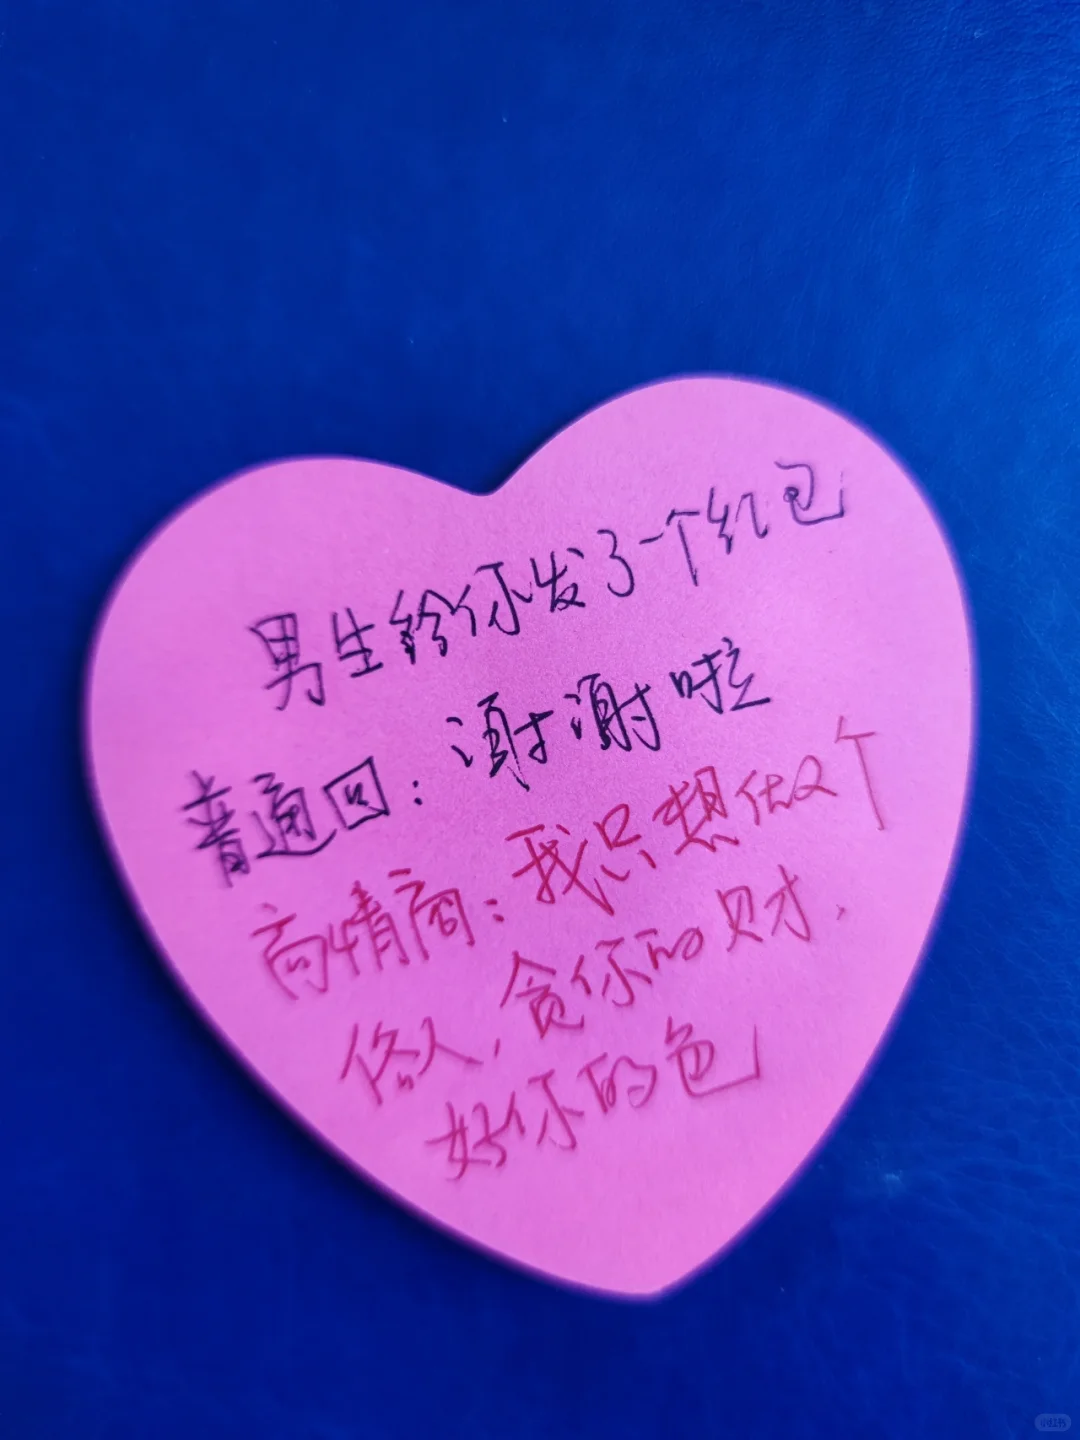 男生给你发了一个红包
普通回：谢谢啦
高情商：我只想做个
俗人，贪你的财，
好你的色
小红书